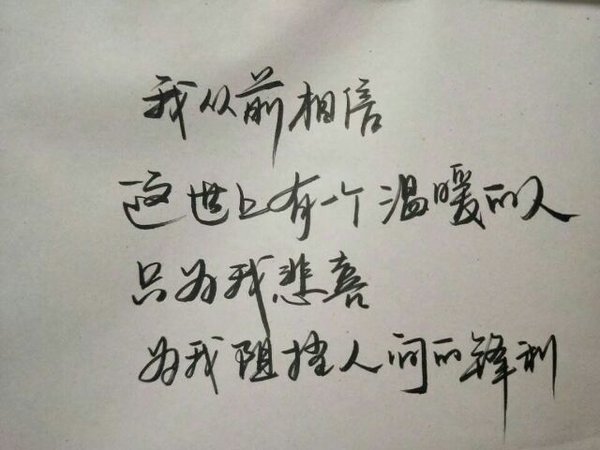 我从前相信
这世上有一个温暖的人
只为我悲喜
为我阻挡人间的锋利